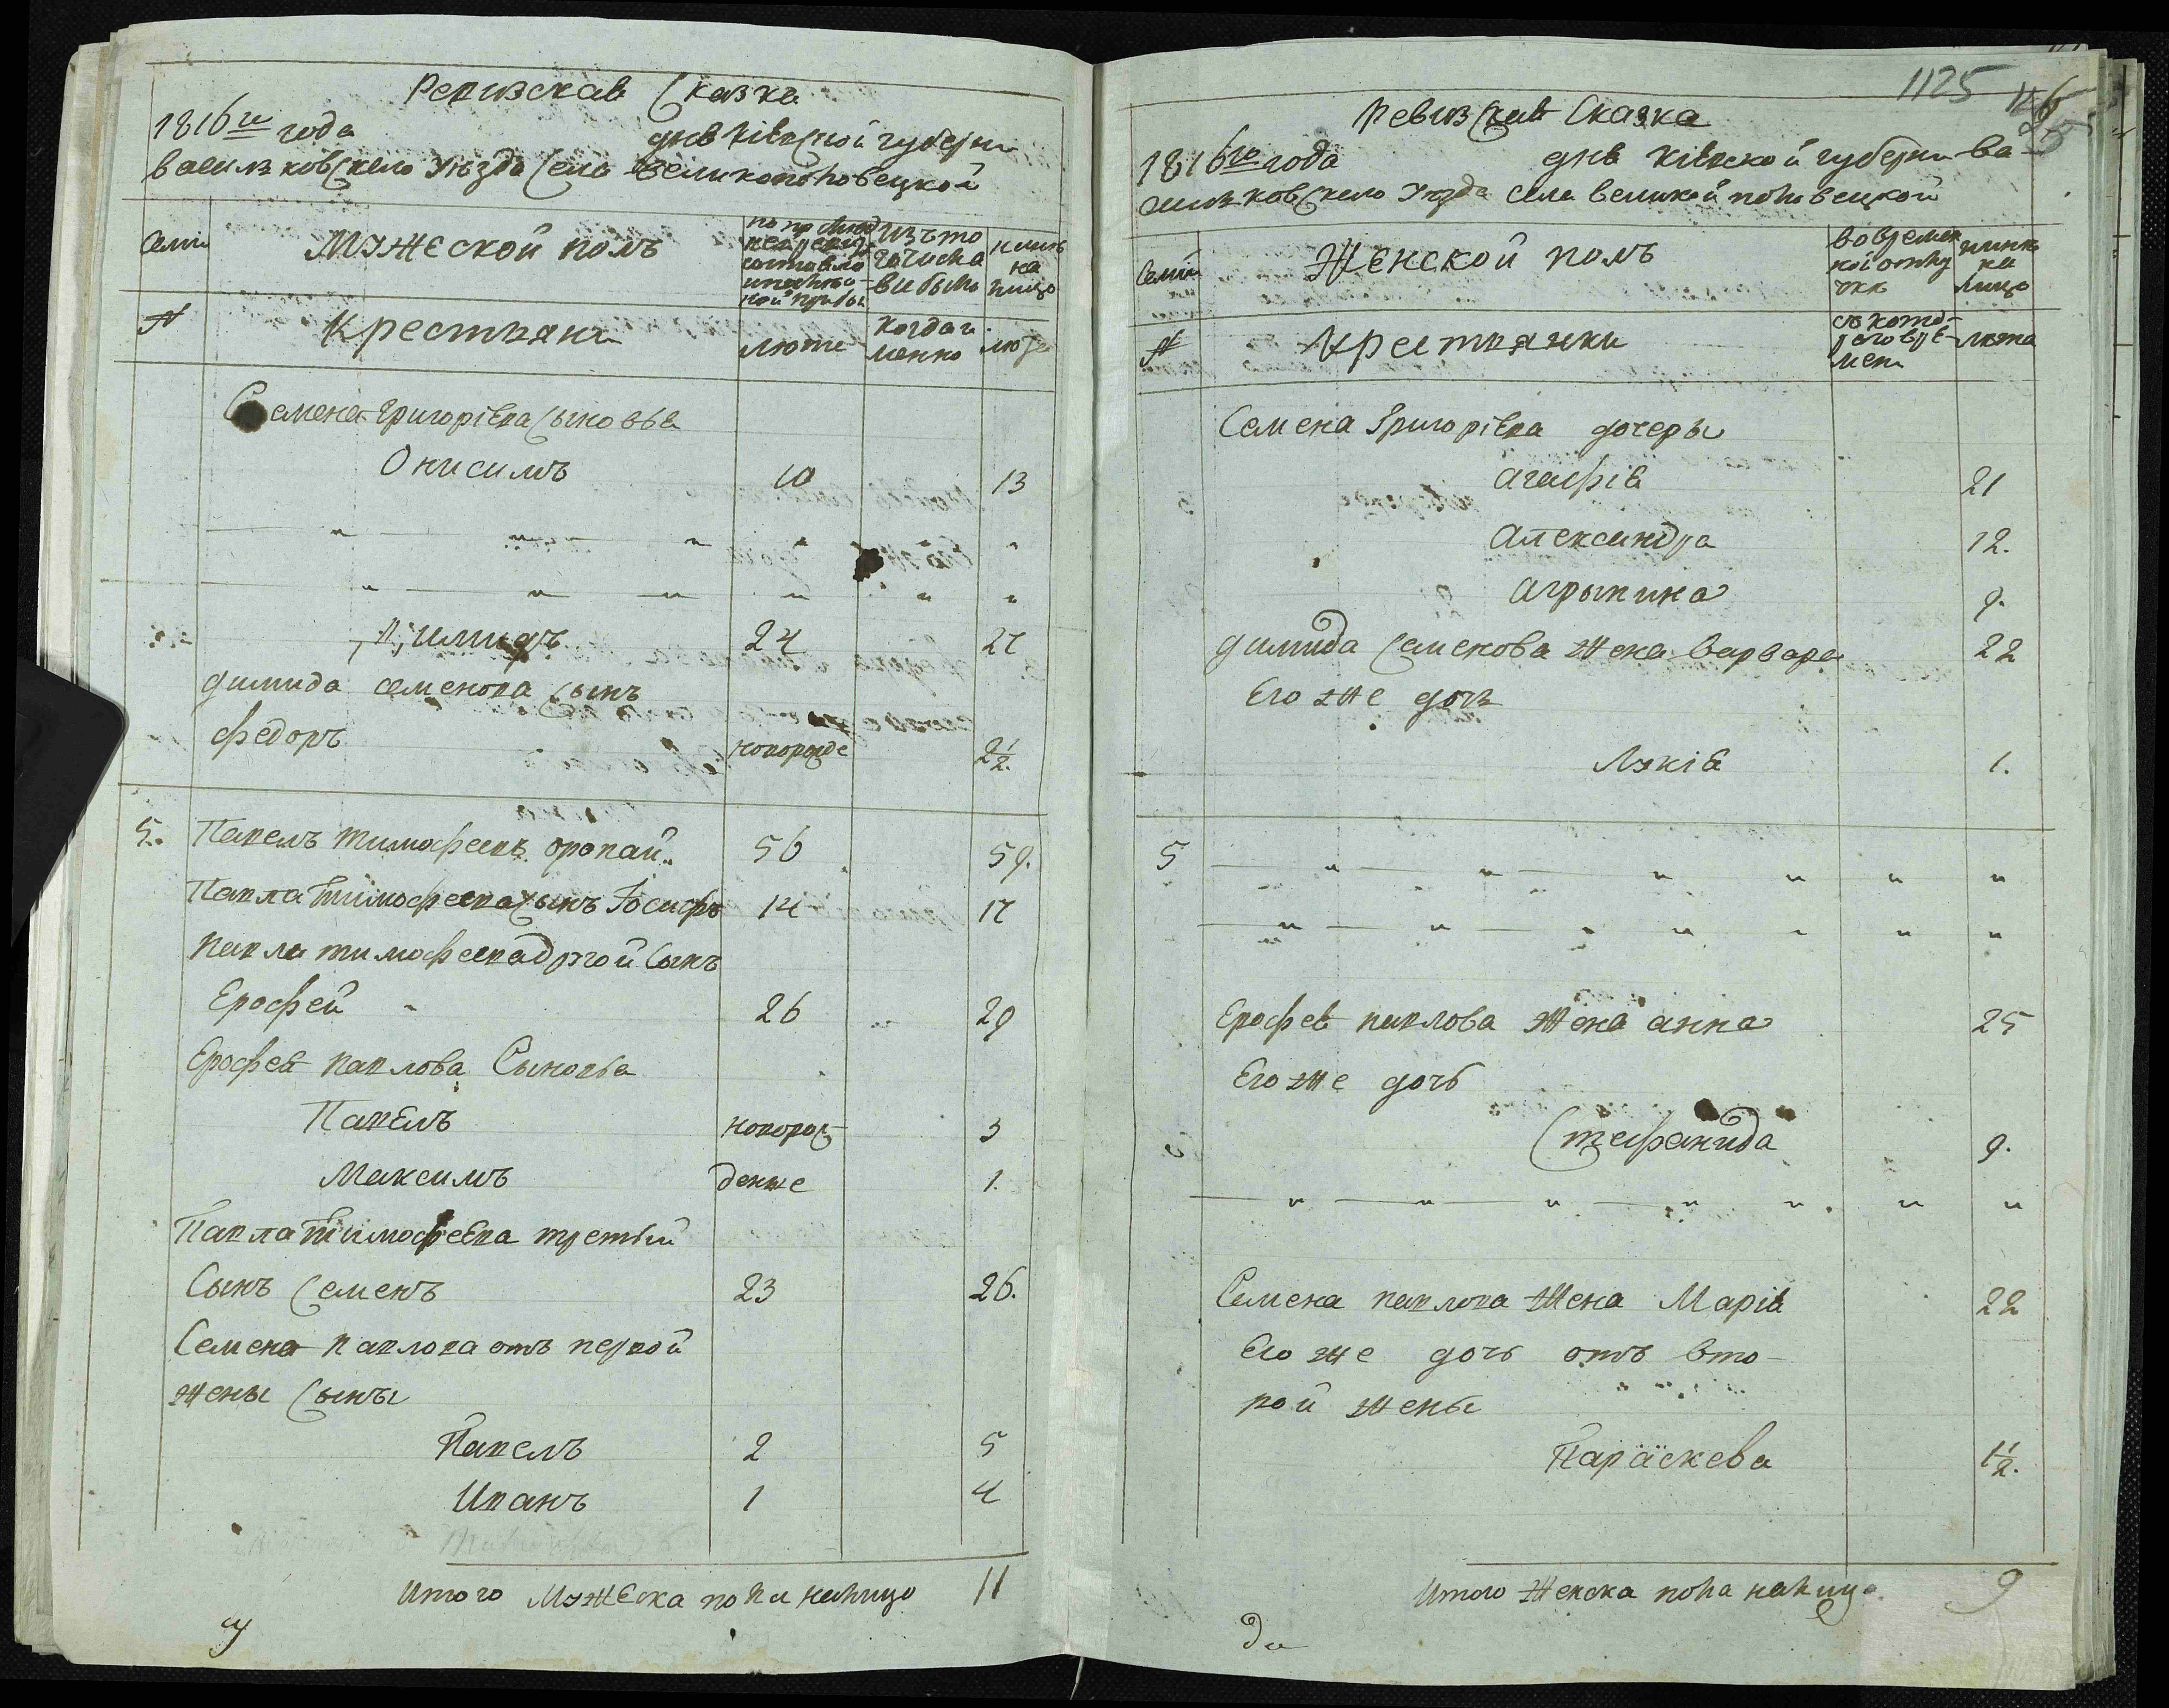 Ревизская Сказка
1816го года дня Кіевской губерни
васильковского уезда села Великополовецкой
Семи
Мужеской полъ
по последней ревизи состояло и после оной прибы
изъ того числа выбыло
ныне на лицо
№
Крестьяне
лета
когда именно
лета
Семена Григоріева сыновья
Онисимъ 10 13
" " " " " "
" " " " " "
Димидъ 24 27
димида семенова сынъ
федоръ новорожде 2½.
5. Павелъ тимофеевъ оропай 56 59.
Павла тимофеева сынъ Іосифъ 14 17
павла тимофеева другой сынъ
Ерофей 26 29
Ерофея павлова Сыновья
Павелъ новорож 3
Максимъ денне 1.
Павла Тимофеева третый
Сынъ Семенъ 23 26.
Семена павлова отъ первой
жены сыны
Павелъ 2 5
Иванъ 1 4
Итого мужеска пола налицо 11
1125
Ревизская Сказка
1816го года дня Кіевской губерни ва-
сильковского уезда села великой половецкой
Семи
Женской полъ
во временной отлу чки
ныне на лицо
№
крестьянки
съ кото- рого вре- мени
лета
Семена Григоріева дочеры
агафія 21
александра 12.
агрыпина 9.
димида семенова жена варвара 22
Его же дочь
Лукія 1.
5 " " " " " "
" " " " " " "
Ерофея павлова жена анна 25
Его же дочь
Стефанида 9.
" " " " " " "
Семена павлова жена Марія 22
Его же дочь отъ вто-
рой жены
Параскева 1½.
Итого женска пола налицо 9
да